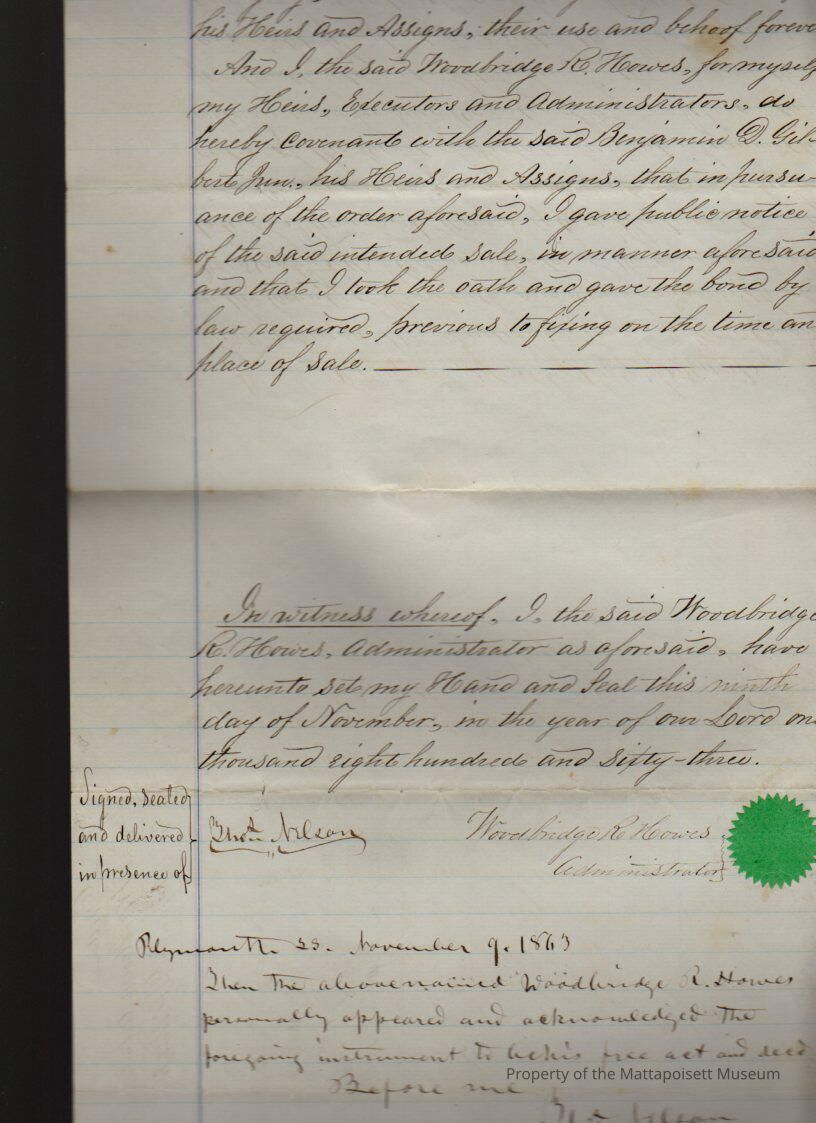 his Heirs and Assigns, their use and behoof foreve
And I, the said Woodbridge R. Howes, for myself
my Heirs, Executors and Administrators, do
hereby covenant with the said Benjamin D. Gil-
bert Jun., his Heirs and Assigns, that in pursu-
ance of the order aforesaid, I gave public notice
of the said intended sale, in manner aforesaid
and that I took the oath and gave the bond by
law required, previous to fixing on the time an
place of sale.
In witness whereof, I, the said Woodbridge
R. Howes, Administrator as aforesaid, have
hereunto set my Hand and Seal this ninth
day of November, in the year of our Lord one
thousand eight hundred and sixty-three.
Signed, sealed
and delivered
in presence of
Thos. Nelson
Woodbridge R Howes
Administrator
Plymouth ss. November 9. 1863
Then the above named Woodbridge R. Howes
personally appeared and acknowledged the
foregoing instrument to be his free act and deed
Before me
Thos. Nelson
Property of the Mattapoisett Museum